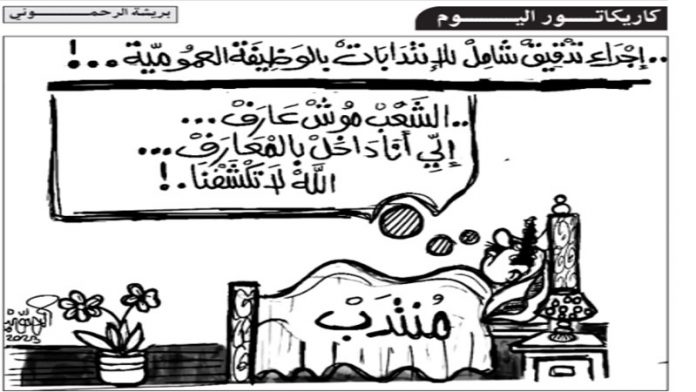 كاريكاتور اليوم
بريشة الرحموني
..إِجْرَاءِ تَدْقِيقْ شَامِلْ لِلْإِنْتِدَابَاتْ بالوَظِيفَة العمُومِيّة...!
..الشَعْبْ مُوشْ عَارِفْ...
إِلِّي أَنَا دَاخِلْ بِالْمَعَارِفْ...
اللّهْ لَا تَكْشَفْنَا.!
مُنْتَدَبْ
2023